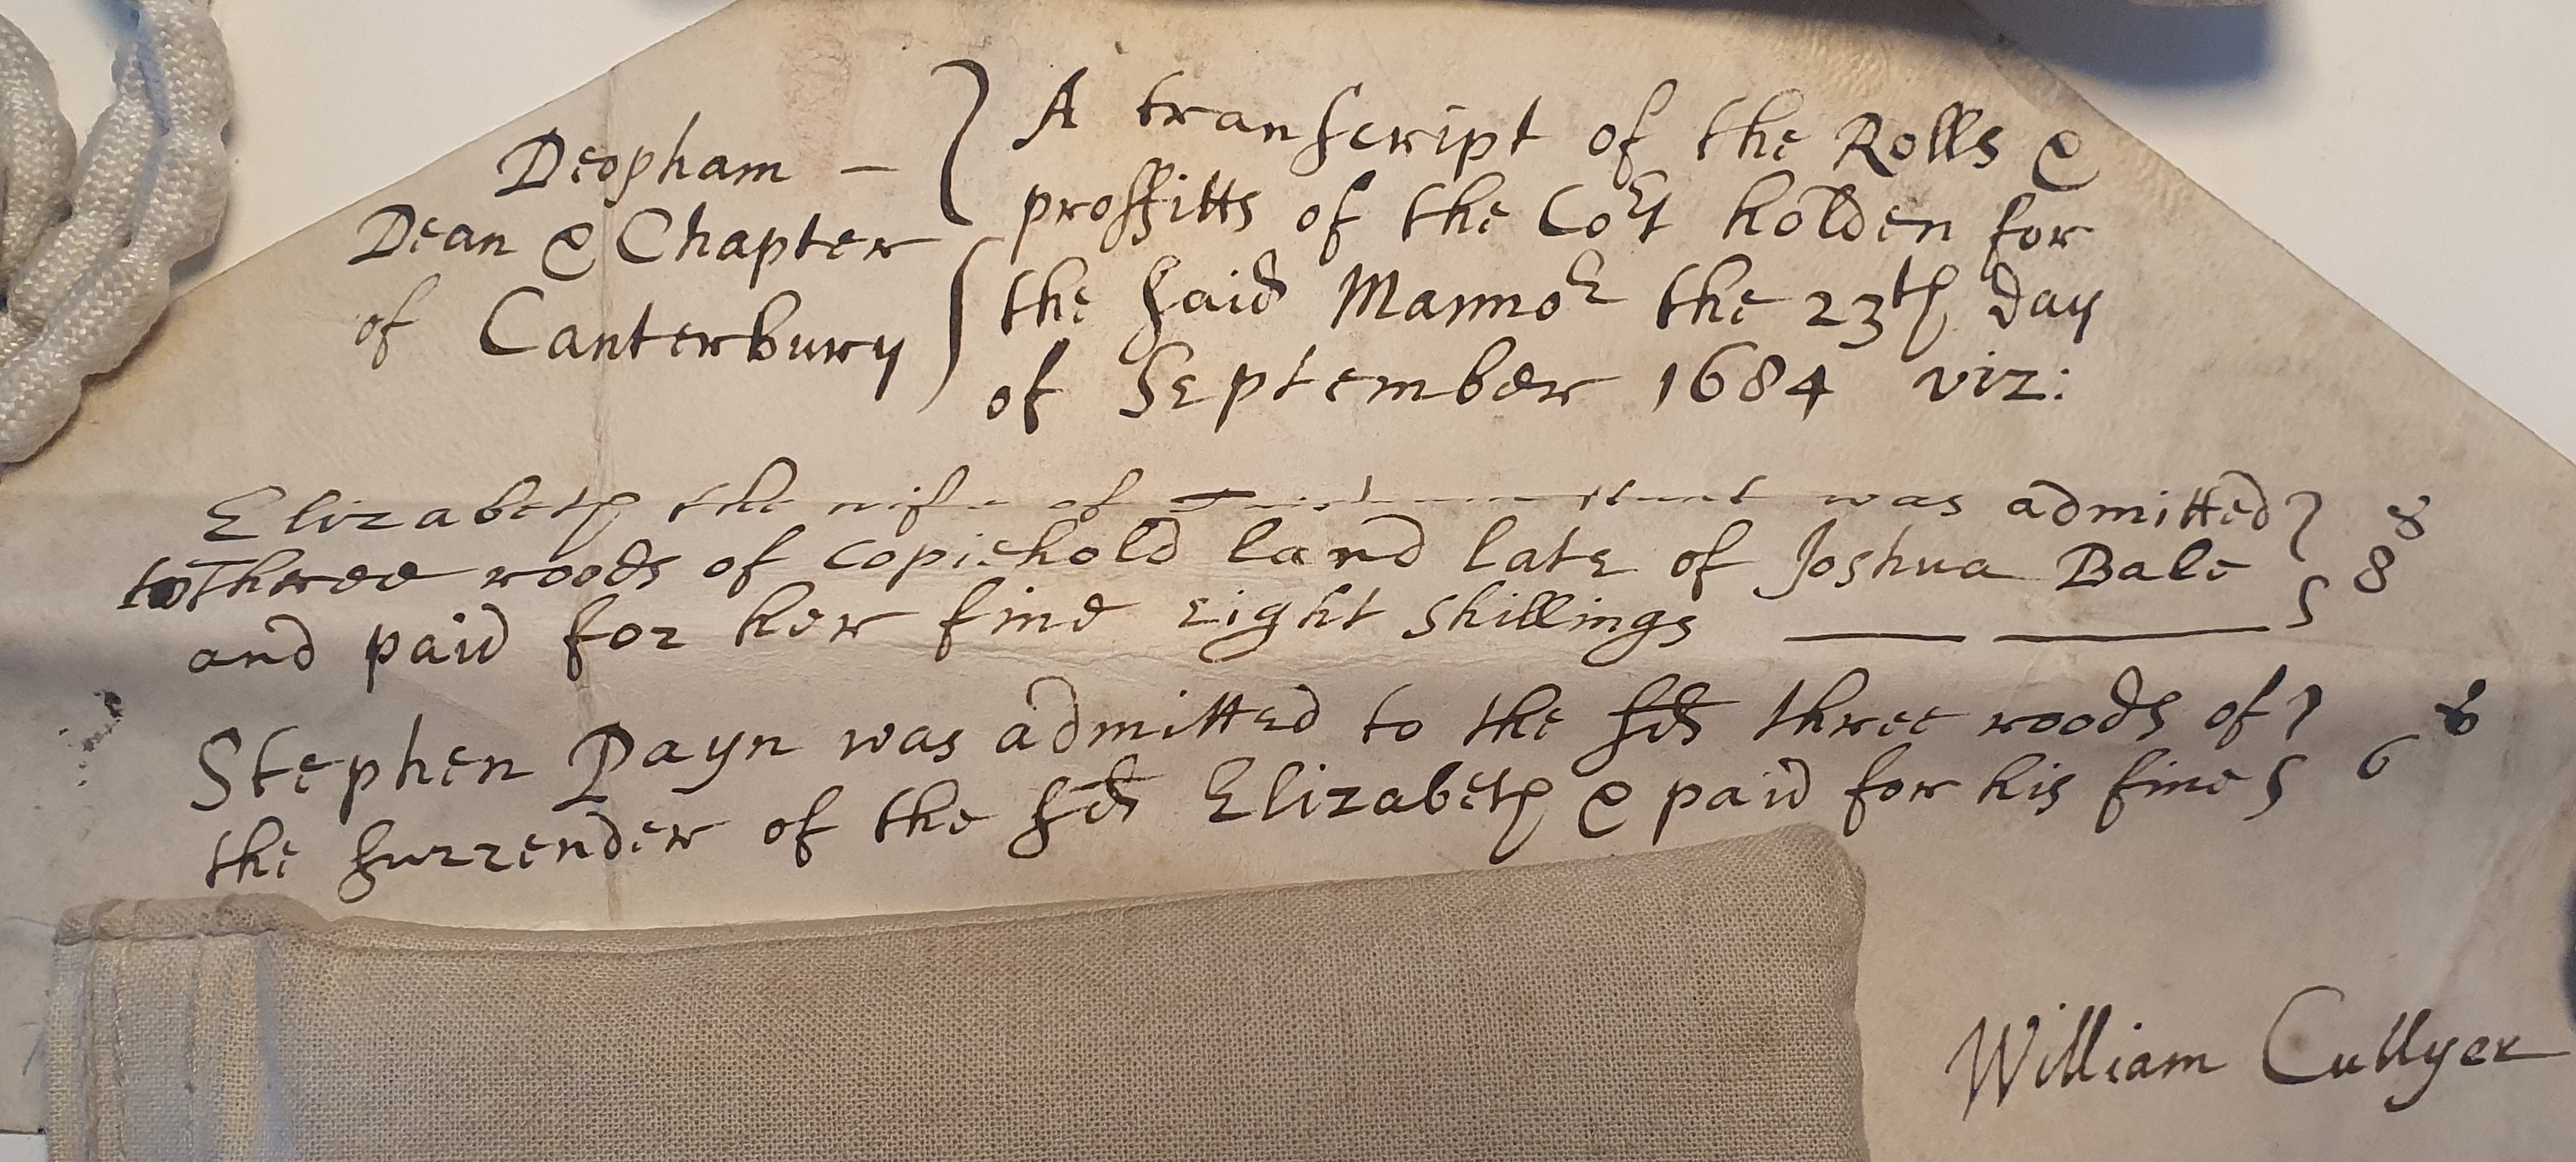 Deopham —
Dean & Chapter
of Canterbury
A transcript of the Rolls &
proffitts of the Cort holden for
the said Mannor the 23th day
of September 1684 viz:
Elizabeth the wife of was admitted 8s
to Three roods of copiehold land late of Joshua Bale 8
and paid for her fine eight shillings
Stephen Payn was admitted to the sds three roods of s
the surrender of the sds Elizabeth & paid for his fine 6
William Cullyer